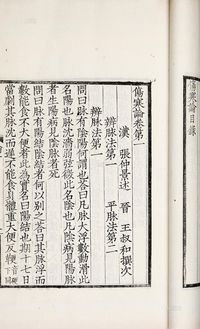 傷寒論卷第一
漢 張仲景述 晉 王叔和撰次
辨脉法第一 平脉法第二
辨脉法第一
問曰脉有陰陽何謂也答曰凡脉大浮數動滑此
名陽也脉沈濇弱弦微此名陰也凡陰病見陽脉
者生陽病見陰脉者死
問曰脉有陽結陰結者何以別之答曰其脉浮而
數能食不大便者此為實名曰陽結也期十七日
當劇其脉沈而遲不能食身體重大便反鞕
傷寒論目錄